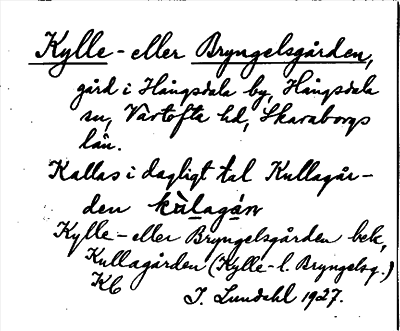 Kylle- eller Bryngelsgården,
gård i Hångsdala by, Hångsdala
sn, Vartofta hd, Skaraborgs
län.
Kallas i dagligt tal Kullagår-
den kùlagán
Kylle- eller Bryngelsgården bek,
Kullagården (Kylle- l. Bryngelsg.)
Kb
I. Lundahl 1927.